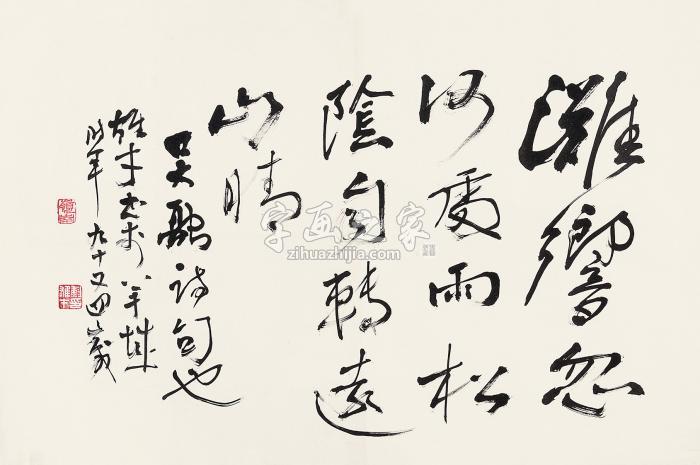 灘響忽
何處雨松
陰自轉遠
山晴
吴融詩句也
雄才书於羊城
时年九十又四歲
字画之家
zihuazhijia.com